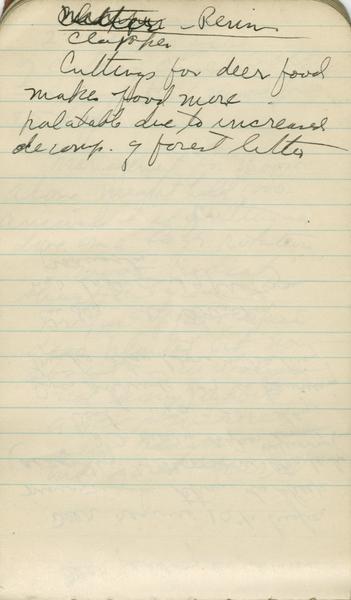 - Penn
Clapper
Cuttings for deer food
makes food more
palatable due to increased
decomp. of forest litter